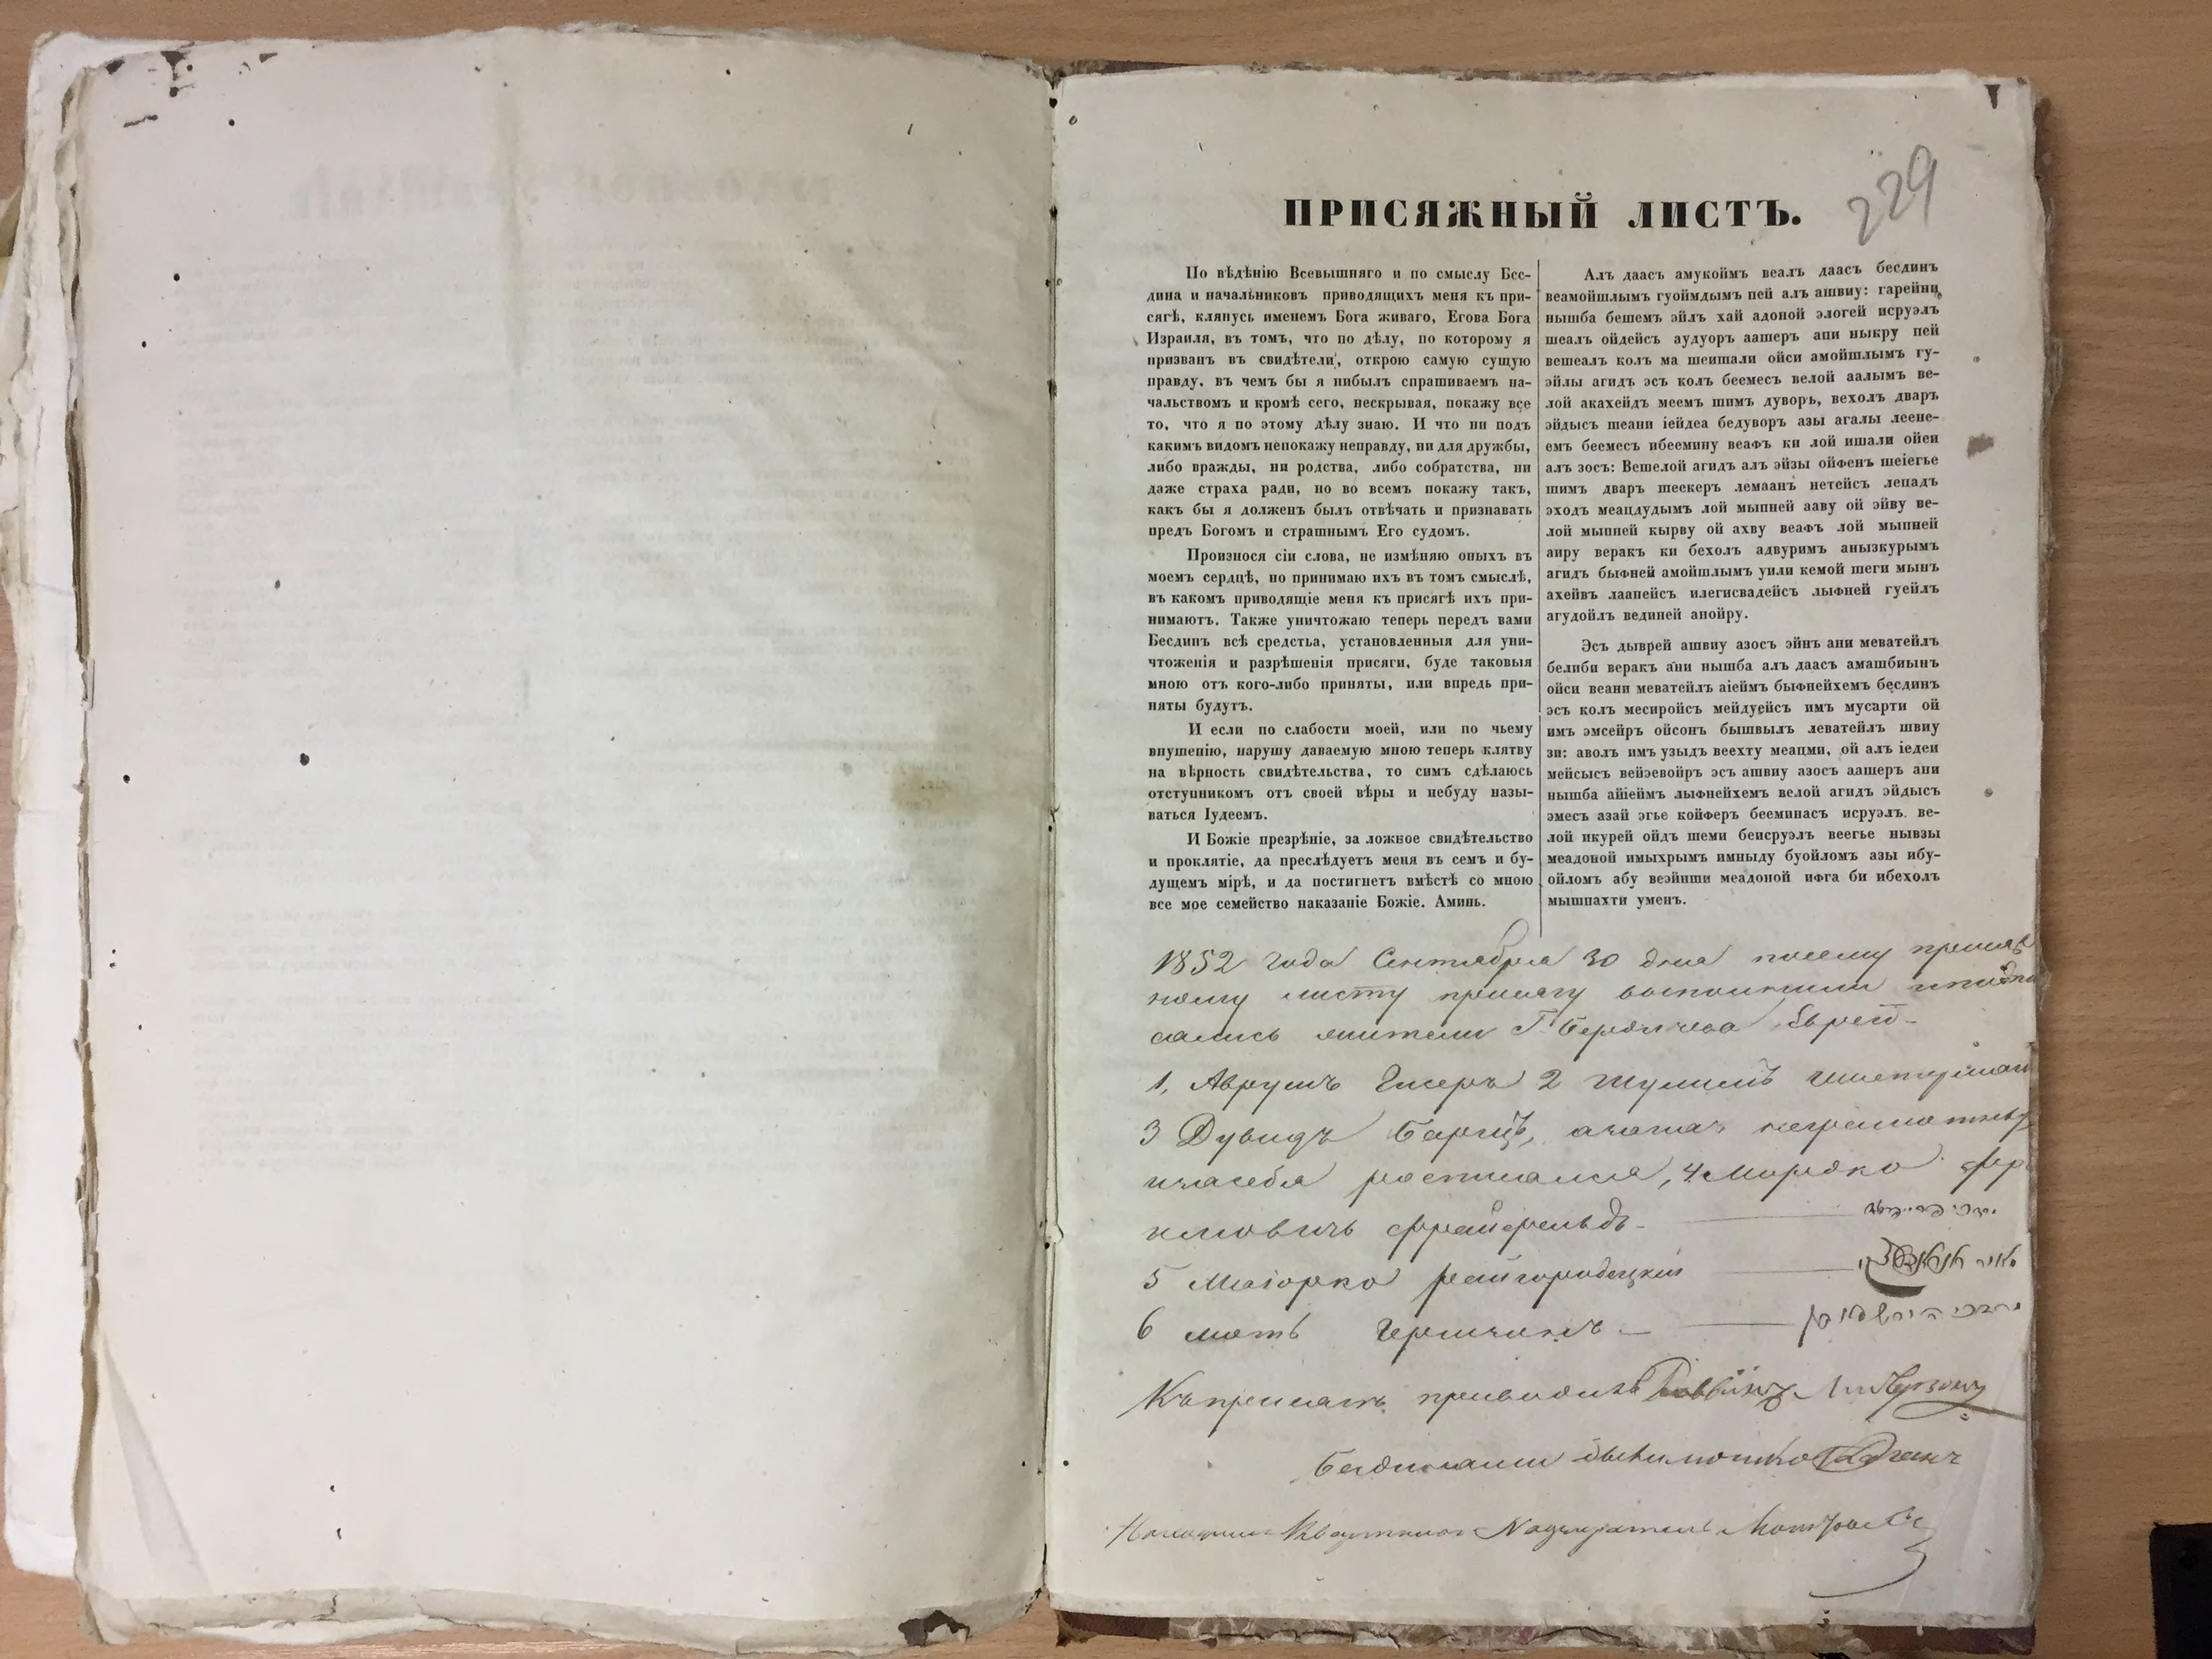 229
ПРИСЯЖНЫЙ ЛИСТЪ.
По вѣдѣнію Всевышняго и по смыслу Бес-
дина и начальниковъ приводящихъ меня къ при-
сягѣ, клянусь именемъ Бога живаго, Егова Бога
Израиля, въ томъ, что по дѣлу, по которому я
призванъ въ свидѣтели, открою самую сущую
правду, въ чемъ бы я нибылъ спрашиваемъ на-
чальствомъ и кромѣ сего, нескрывая, покажу все
то, что я по этому дѣлу знаю. И что ни подъ
какимъ видомъ непокажу неправду, ни для дружбы,
либо вражды, ни родства, либо собратства, ни
даже страха ради, но во всемъ покажу такъ,
какъ бы я долженъ былъ отвѣчать и признавать
предъ Богомъ и страшнымъ Его судомъ.
Произнося сіи слова, не измѣняю оныхъ въ
моемъ сердцѣ, но принимаю ихъ въ томъ смыслѣ,
въ какомъ приводящіе меня къ присягѣ ихъ при-
нимаютъ. Также уничтожаю теперь передъ вами
Бесдинъ всѣ средства, установленныя для уни-
чтоженія и разрѣшенія присяги, буде таковыя
мною отъ кого-либо приняты, или впредь при-
няты будутъ.
И если по слабости моей, или по чьему
внушенію, нарушу даваемую мною теперь клятву
на вѣрность свидѣтельства, то симъ сдѣлаюсь
отступникомъ отъ своей вѣры и небуду назы-
ваться Іудеемъ.
И Божіе презрѣніе, за ложное свидѣтельство
и проклятіе, да преслѣдуетъ меня въ семъ и бу-
дущемъ мірѣ, и да постигнетъ вмѣстѣ со мною
все мое семейство наказаніе Божіе. Аминь.
Алъ даасъ амукоймъ веалъ даасъ бесдинъ
веамойшлымъ гуоймдымъ пей алъ ашвиу: гарейни
нышба бешемъ эйлъ хай адоной элогей исруэлъ
шеалъ ойдейсъ аудуоръ аашеръ ани ныкру пей
вешеалъ колъ ма шеишали ойси амойшлымъ гу-
эйлы агидъ эсъ колъ беемесъ велой аалымъ ве-
лой акахейдъ меемъ шимъ дуворъ, вехолъ дваръ
эйдысъ шеани іейдеа бедуворъ азы агалы леене-
емъ беемесъ ибеемину веафъ ки лой ишали ойси
алъ зосъ: Вешелой агидъ алъ эйзы ойфенъ шеіегье
шимъ дваръ шеекеръ лемаанъ нетейсъ лецадъ
эходъ меацдудымъ лой мыпней ааву ой эйву ве-
лой мыпней кырву ой ахву веафъ лой мыпней
аиру веракъ ки бехолъ адвуримъ анызкурымъ
агидъ быфней амойшлымъ уили кемой шеги мынъ
ахейвъ лаанейсъ илегисвадейсъ лыфней гуейлъ
агудойлъ вединей анойру.
Эсъ дыврей ашвиу азосъ эйнъ ани меватейлъ
белиби веракъ ани нышба алъ даасъ амашбиынъ
ойси веани меватейлъ аіеймъ быфнейхемъ бесдинъ
эсъ колъ месиройсъ мейдуейсъ имъ мусарти ой
имъ эмсейръ ойсонъ бышвылъ леватейлъ швиу
зи: аволъ имъ узыдъ веехту меацми, ой алъ іедеи
мейсысъ вейэевойръ эсъ ашвиу азосъ аашеръ ани
нышба айіеймъ лыфнейхемъ велой агидъ эйдысъ
эмесъ азай эгье койферъ бееминасъ исруэлъ ве-
лой икурей ойдъ шеми беисруэлъ веегье нывзы
меадоной имыхрымъ имныду буойломъ азы ибу-
ойломъ абу веэйнши меадоной ифга би ибехолъ
мышпахти уменъ.
1852 года Сентября 30 дня посему присяж
ному листу присягу выполнили иподпи
сались жители Г. Бердичева Евреи-
1, Аврумъ 2 Шулимъ
3 Дувидъ неграмотн
и росписался, 4. Мордко
Фрайфельдъ
5 Маіорко Райгородецкій
6 Мотъ
Къ присягѣ приводилъ Раввинъ
Бесдинами были
Квартальный Надзиратель